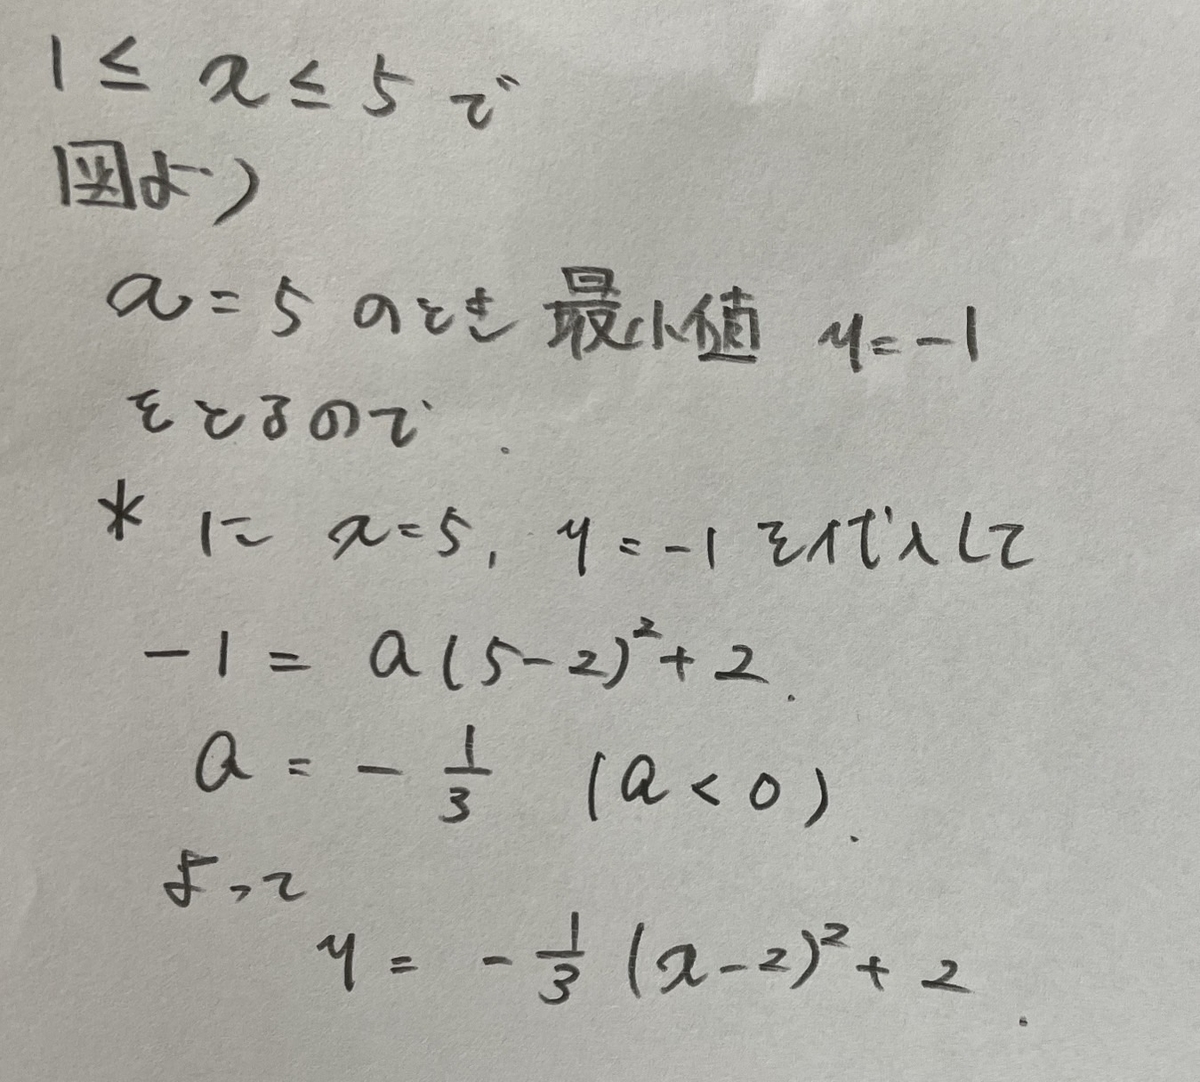 1 ≤ x ≤ 5 で
図より
a = 5 のとき 最小値 y = -1
をとるので.
* に x = 5, y = -1 を代入して
-1 = a(5-2)² + 2.
a = - 1/3 (a < 0).
よって
y = - 1/3 (x-2)² + 2.